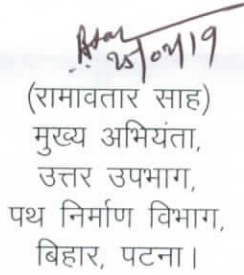 25/02/19
(रामावतार साह)
मुख्य अभियंता,
उत्तर उपभाग,
पथ निर्माण विभाग,
बिहार, पटना।